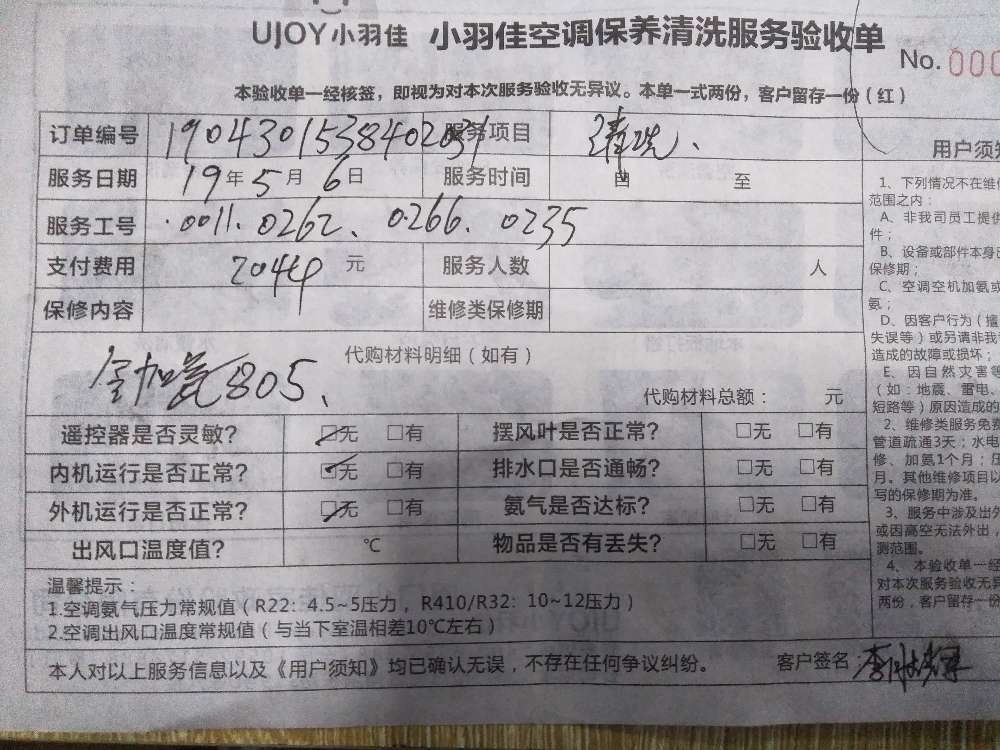 UJOY小羽佳 小羽佳空调保养清洗服务验收单
No. 000
本验收单一经核签，即视为对本次服务验收无异议。本单一式两份，客户留存一份（红）
订单编号 190430153840203 服务项目 清洗、
服务日期 19年5月6日 服务时间 自 至
服务工号 0011. 0262、 0266. 0235
支付费用 2044 元 服务人数 人
保修内容 维修类保修期
代购材料明细（如有）
加氨805、
代购材料总额： 元
遥控器是否灵敏？ ☑无 □有 摆风叶是否正常？ □无 □有
内机运行是否正常？ ☑无 □有 排水口是否通畅？ □无 □有
外机运行是否正常？ ☑无 □有 氨气是否达标？ □无 □有
出风口温度值？ ℃ 物品是否有丢失？ □无 □有
温馨提示：
1.空调氨气压力常规值（R22：4.5~5压力，R410/R32：10~12压力）
2.空调出风口温度常规值（与当下室温相差10℃左右）
本人对以上服务信息以及《用户须知》均已确认无误，不存在任何争议纠纷。 客户签名
用户须知
1、下列情况不在维
范围之内：
A、非我司员工提供
件；
B、设备或部件本身
保修期；
C、空调空机加氨或
氨；
D、因客户行为（
失误等）或另请非我
造成的故障或损坏；
E、因自然灾害等
（如：地震、雷电、
短路等）原因造成的
2、维修类服务免费
管道疏通3天；水电
修、加氨1个月；
月。其他维修项目以
写的保修期为准。
3、服务中涉及出外
或因高空无法外出，
测范围。
4、本验收单一经
对本次服务验收无
两份，客户留存一份